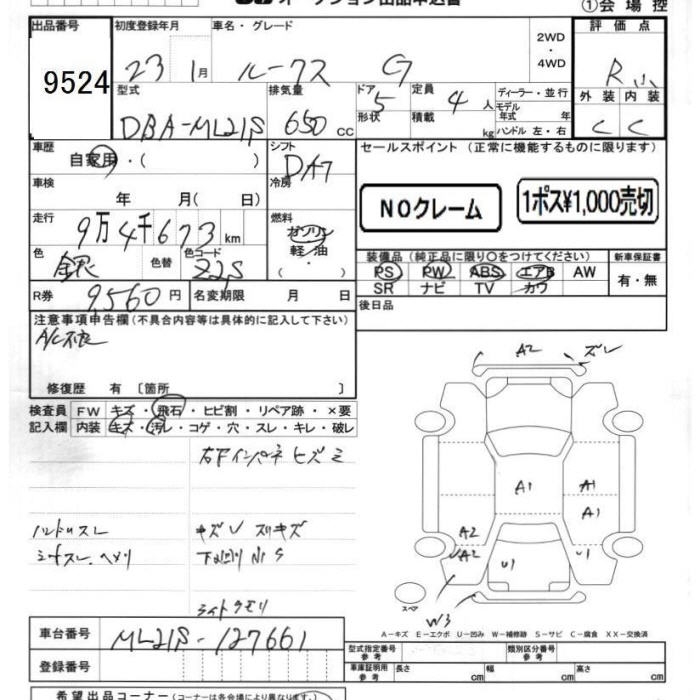 オークション出品申込書
①会場控
出品番号
9524
初度登録年月
車名・グレード
評価点
23 1月
ルークス G
2WD
・
4WD
R 小
型式
排気量
ドア
定員
ディーラー・並行
外装
内装
DBA-ML21S
650 CC
5
4人
モデル
年式 年
形状
積載
kg
ハンドル 左・右
C C
車歴
自家用・( )
シフト
DA7
セールスポイント (正常に機能するものに限ります)
車検
年 月( 日)
冷房
NOクレーム
1ポス¥1,000売切
走行
9万4千673km
燃料
ガソリン
軽油
・
色
銀
色替
色コード
Z2S
装備品 (純正品に限り○をつけてください)
新車保証書
PS PW ABS エアB AW
SR ナビ TV カワ
有・無
R券
9,560円
名変期限 月 日
後日品
注意事項申告欄(不具合内容等は具体的に記入して下さい)
A/C不良
修復歴 有 〔箇所 〕
検査員
記入欄
FW キズ・飛石・ヒビ割・リペア跡・×要
内装 キズ・汚レ・コゲ・穴・スレ・キレ・破レ
右F インパネ ヒズミ
ハンドルスレ
キズ U スリキズ
シートスレ、ヘタリ
下廻り サビ S
ライトクモリ
A2
ズレ
A1
A1
A1
A2
A2
U1
U1
スペア
W3
A-キズ E-エクボ U-凹み W-補修跡 S-サビ C-腐食 XX-交換済
車台番号
ML21S-127661
登録番号
型式指定番号
参考
類別区分番号
参考
車庫証明用
参考
長さ cm
幅 cm
高さ cm
希望出品コーナー(コーナーは各会場により異なります)